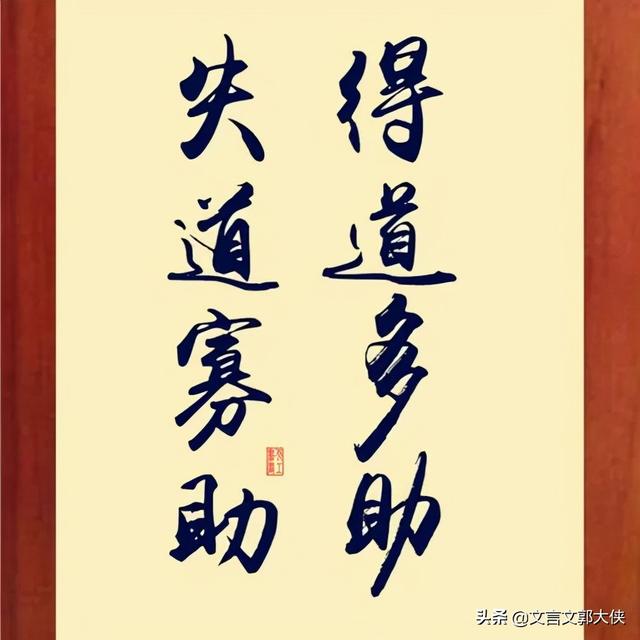 得道多助
失道寡助
头条 @文言文郭大侠